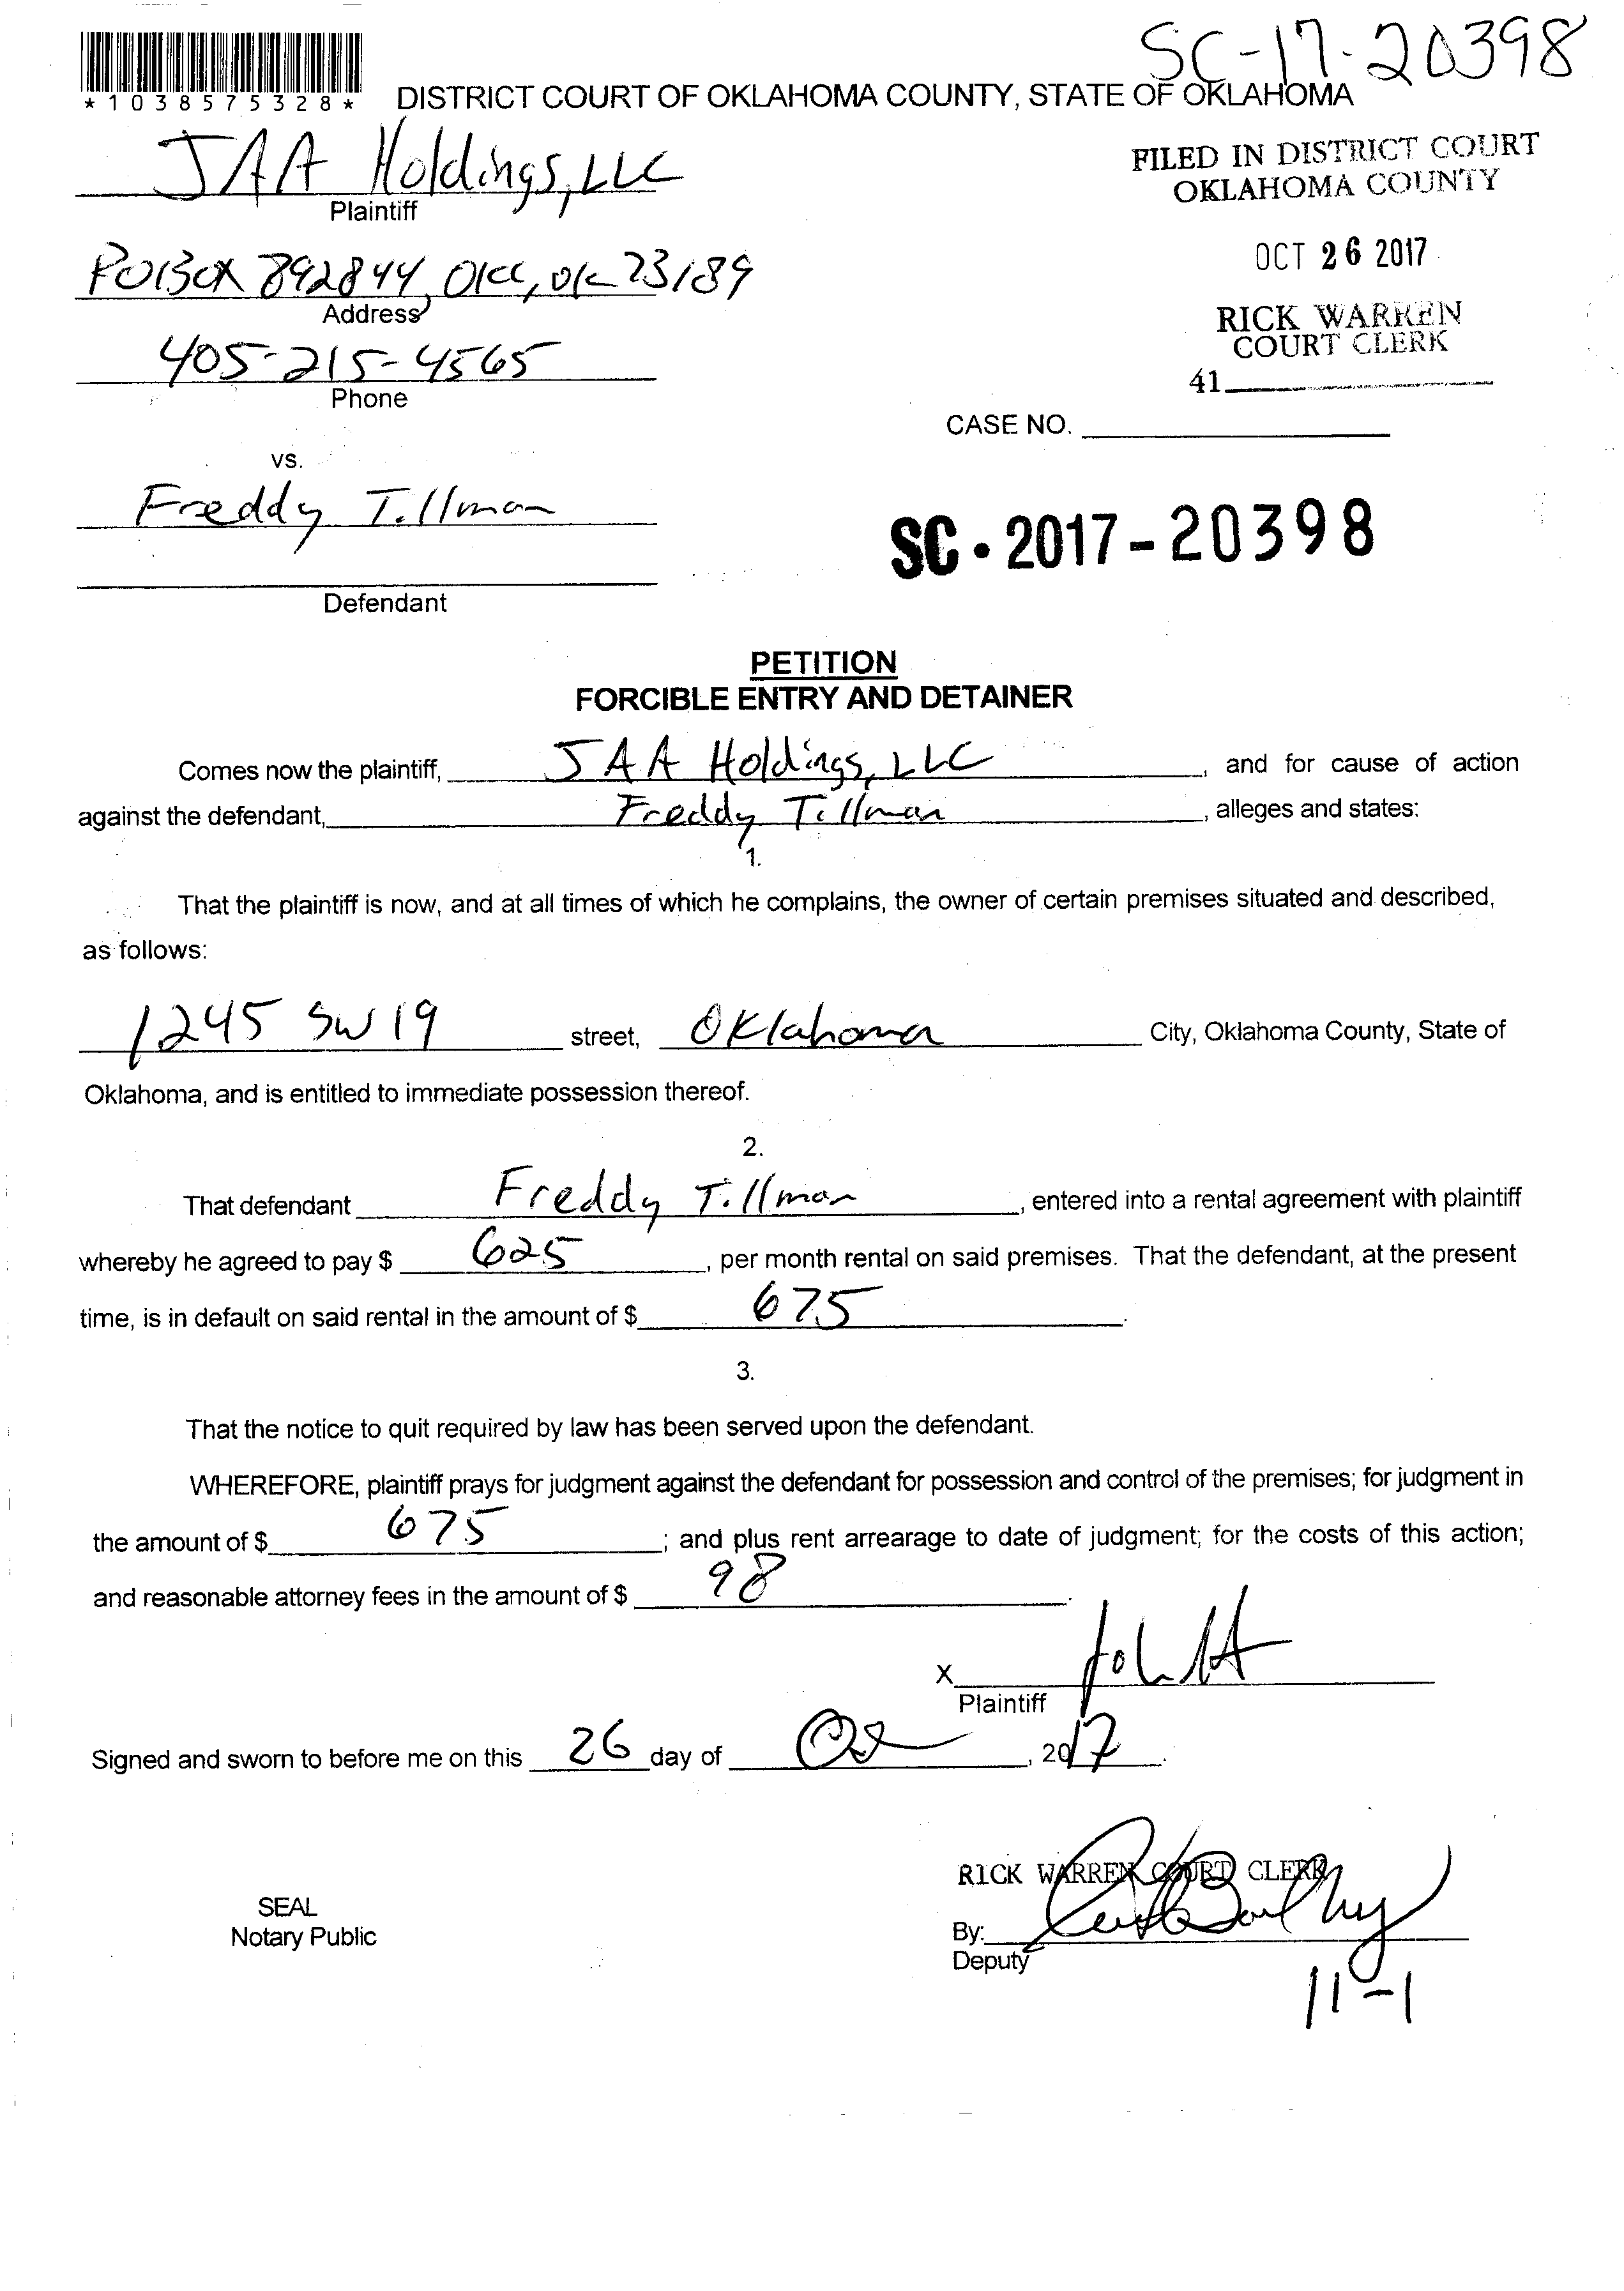 SC-17-20398
*1038575328*
DISTRICT COURT OF OKLAHOMA COUNTY, STATE OF OKLAHOMA
JAA Holdings, LLC
Plaintiff
FILED IN DISTRICT COURT
OKLAHOMA COUNTY
PO Box 892844, OKC, OK 73189
Address
OCT 26 2017
RICK WARREN
COURT CLERK
405-215-4565
Phone
41
CASE NO.
vs.
Freddy Tillman
SC-2017-20398
Defendant
PETITION
FORCIBLE ENTRY AND DETAINER
Comes now the plaintiff, JAA Holdings, LLC, and for cause of action
against the defendant, Freddy Tillman, alleges and states:
1.
That the plaintiff is now, and at all times of which he complains, the owner of certain premises situated and described,
as follows:
1245 SW 19 street, Oklahoma City, Oklahoma County, State of
Oklahoma, and is entitled to immediate possession thereof.
2.
That defendant Freddy Tillman, entered into a rental agreement with plaintiff
whereby he agreed to pay $ 625, per month rental on said premises. That the defendant, at the present
time, is in default on said rental in the amount of $ 675.
3.
That the notice to quit required by law has been served upon the defendant.
WHEREFORE, plaintiff prays for judgment against the defendant for possession and control of the premises; for judgment in
the amount of $ 675; and plus rent arrearage to date of judgment; for the costs of this action;
and reasonable attorney fees in the amount of $ 98.
X
Plaintiff
Signed and sworn to before me on this 26 day of Oct, 2017.
RICK WARREN COURT CLERK
SEAL
Notary Public
By:
Deputy
11-1